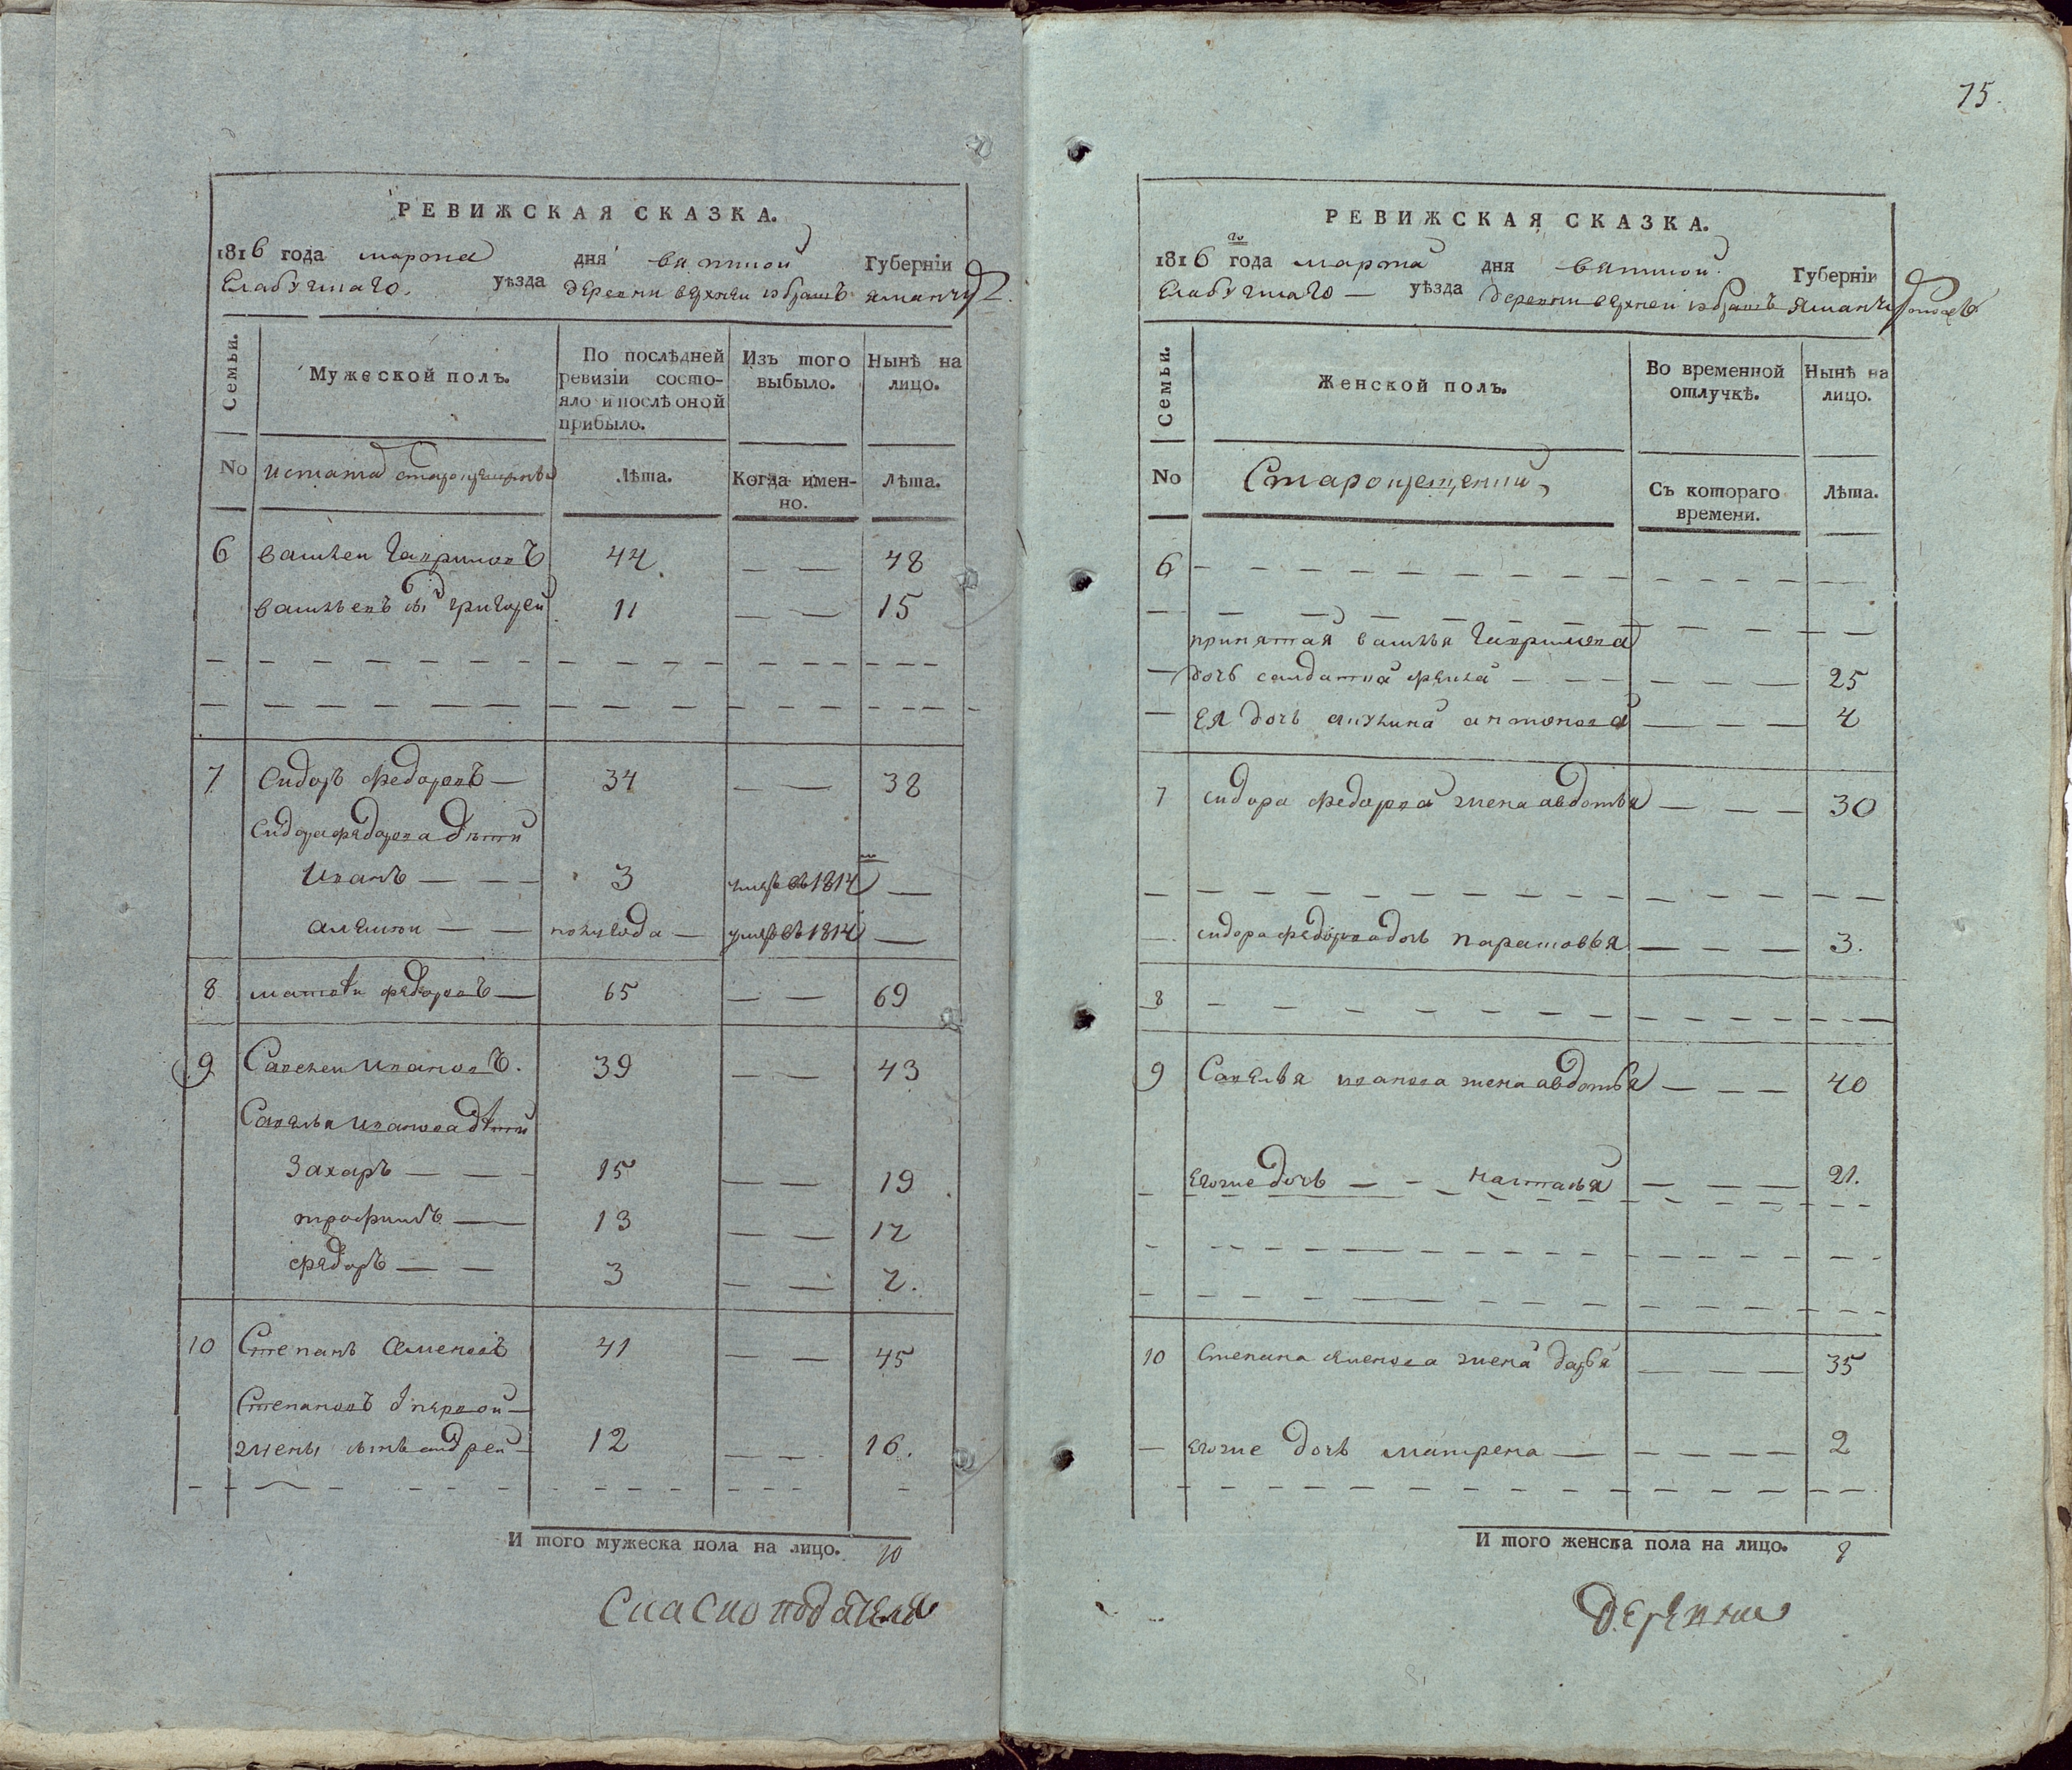 РЕВИЖСКАЯ СКАЗКА.
1816 года марта дня вятской Губерніи
Елабужскаго. уѣзда деревни верхней
Семьи.
Мужеской полъ.
По послѣдней ревизіи состо-
яло и послѣ оной
прибыло.
Изъ того
выбыло.
Нынѣ на
лицо.
No
Лѣта.
Когда имен-
но.
Лѣта.
6 василей гавриловъ 44 — — 48
васильевъ сынъ григорей 11 — — 15
7 Сидоръ федоровъ — 34 — — 38
Сидора федорова дѣти
Иванъ — — — 3 умре въ 1814 —
алексѣй — — полугода — умре въ 1814 —
8 матвѣй федоровъ — 65 — — 69
9 Савелей ивановъ. 39 — — 43
Савелья иванова дѣти
Захаръ — — — 15 — — 19
трофимъ — 13 — — 17
федоръ — — 3 — — 7.
10 Степанъ семеновъ 41 — — 45
Степановъ от первой —
жены сынъ андрей — 12 — — 16.
И того мужеска пола на лицо. 10
15.
РЕВИЖСКАЯ СКАЗКА.
1816 го года марта дня вятской Губерніи
Елабужскаго — уѣзда деревни верхней
Семьи.
Женской полъ.
Во временной
отлучкѣ.
Нынѣ на
лицо.
No
Старокрещенни
Съ котораго
времени.
Лѣта.
6
принятая василья гаврилова
дочь солдатка фекла — — — 25
ея дочь акулина антонова — — — 4
7 сидора федорова жена авдотья — — — 30
сидора федорова дочь парасковья — — — 3.
8
9 Савелья иванова жена авдотья — — — 40
егоже дочь — - наталья — — — 21.
10 степана семенова жена дарья — — — 35
— егоже дочь матрена — — — — — 2
И того женска пола на лицо. 8
деревни